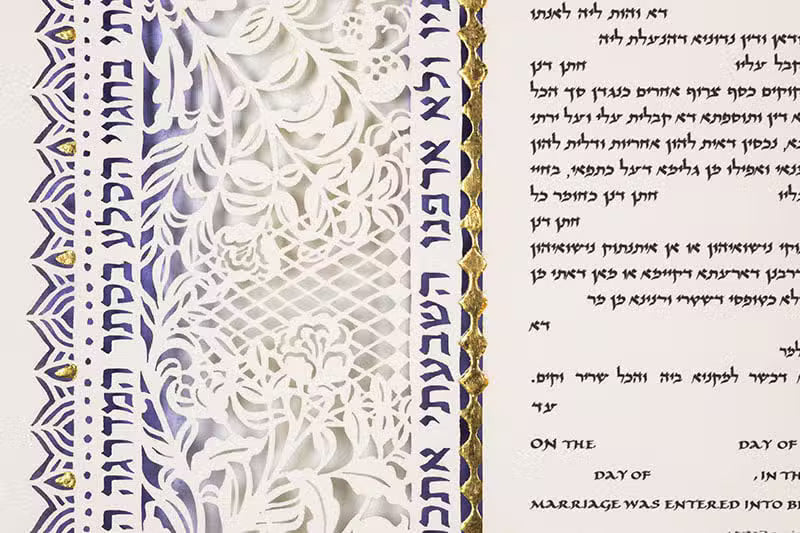 תי בחגוי הסלע בסתר המדרגה ה
יו ולא ארפנו השבעתי אתכ
דא והות ליה לאנתו
ודאן ודין נדוניא דהנעלת ליה
קבל עליו חתן דנן
קוקים כסף צרוף אחרים כנגדן סך הכל
א דין ותוספתא דא קבלית עלי ועל ירתי
א, נכסין דאית להון אחריות ודלית להון
נאי ואפילו מן גלימא דעל כתפאי, בחיי
ליו חתן דנן כחומר כל
חתן דנן
וקי נישואיהון או אן איתנתוק נישואיהון
דרבנן דארעתא דקיימא או מאן דאתי מן
לא כטופסי דשטרי וקנינא מן מר
דא
למר
א דכשר למקניא ביה והכל שריר וקים.
עד
ON THE DAY OF
DAY OF , IN TH
MARRIAGE WAS ENTERED INTO BE